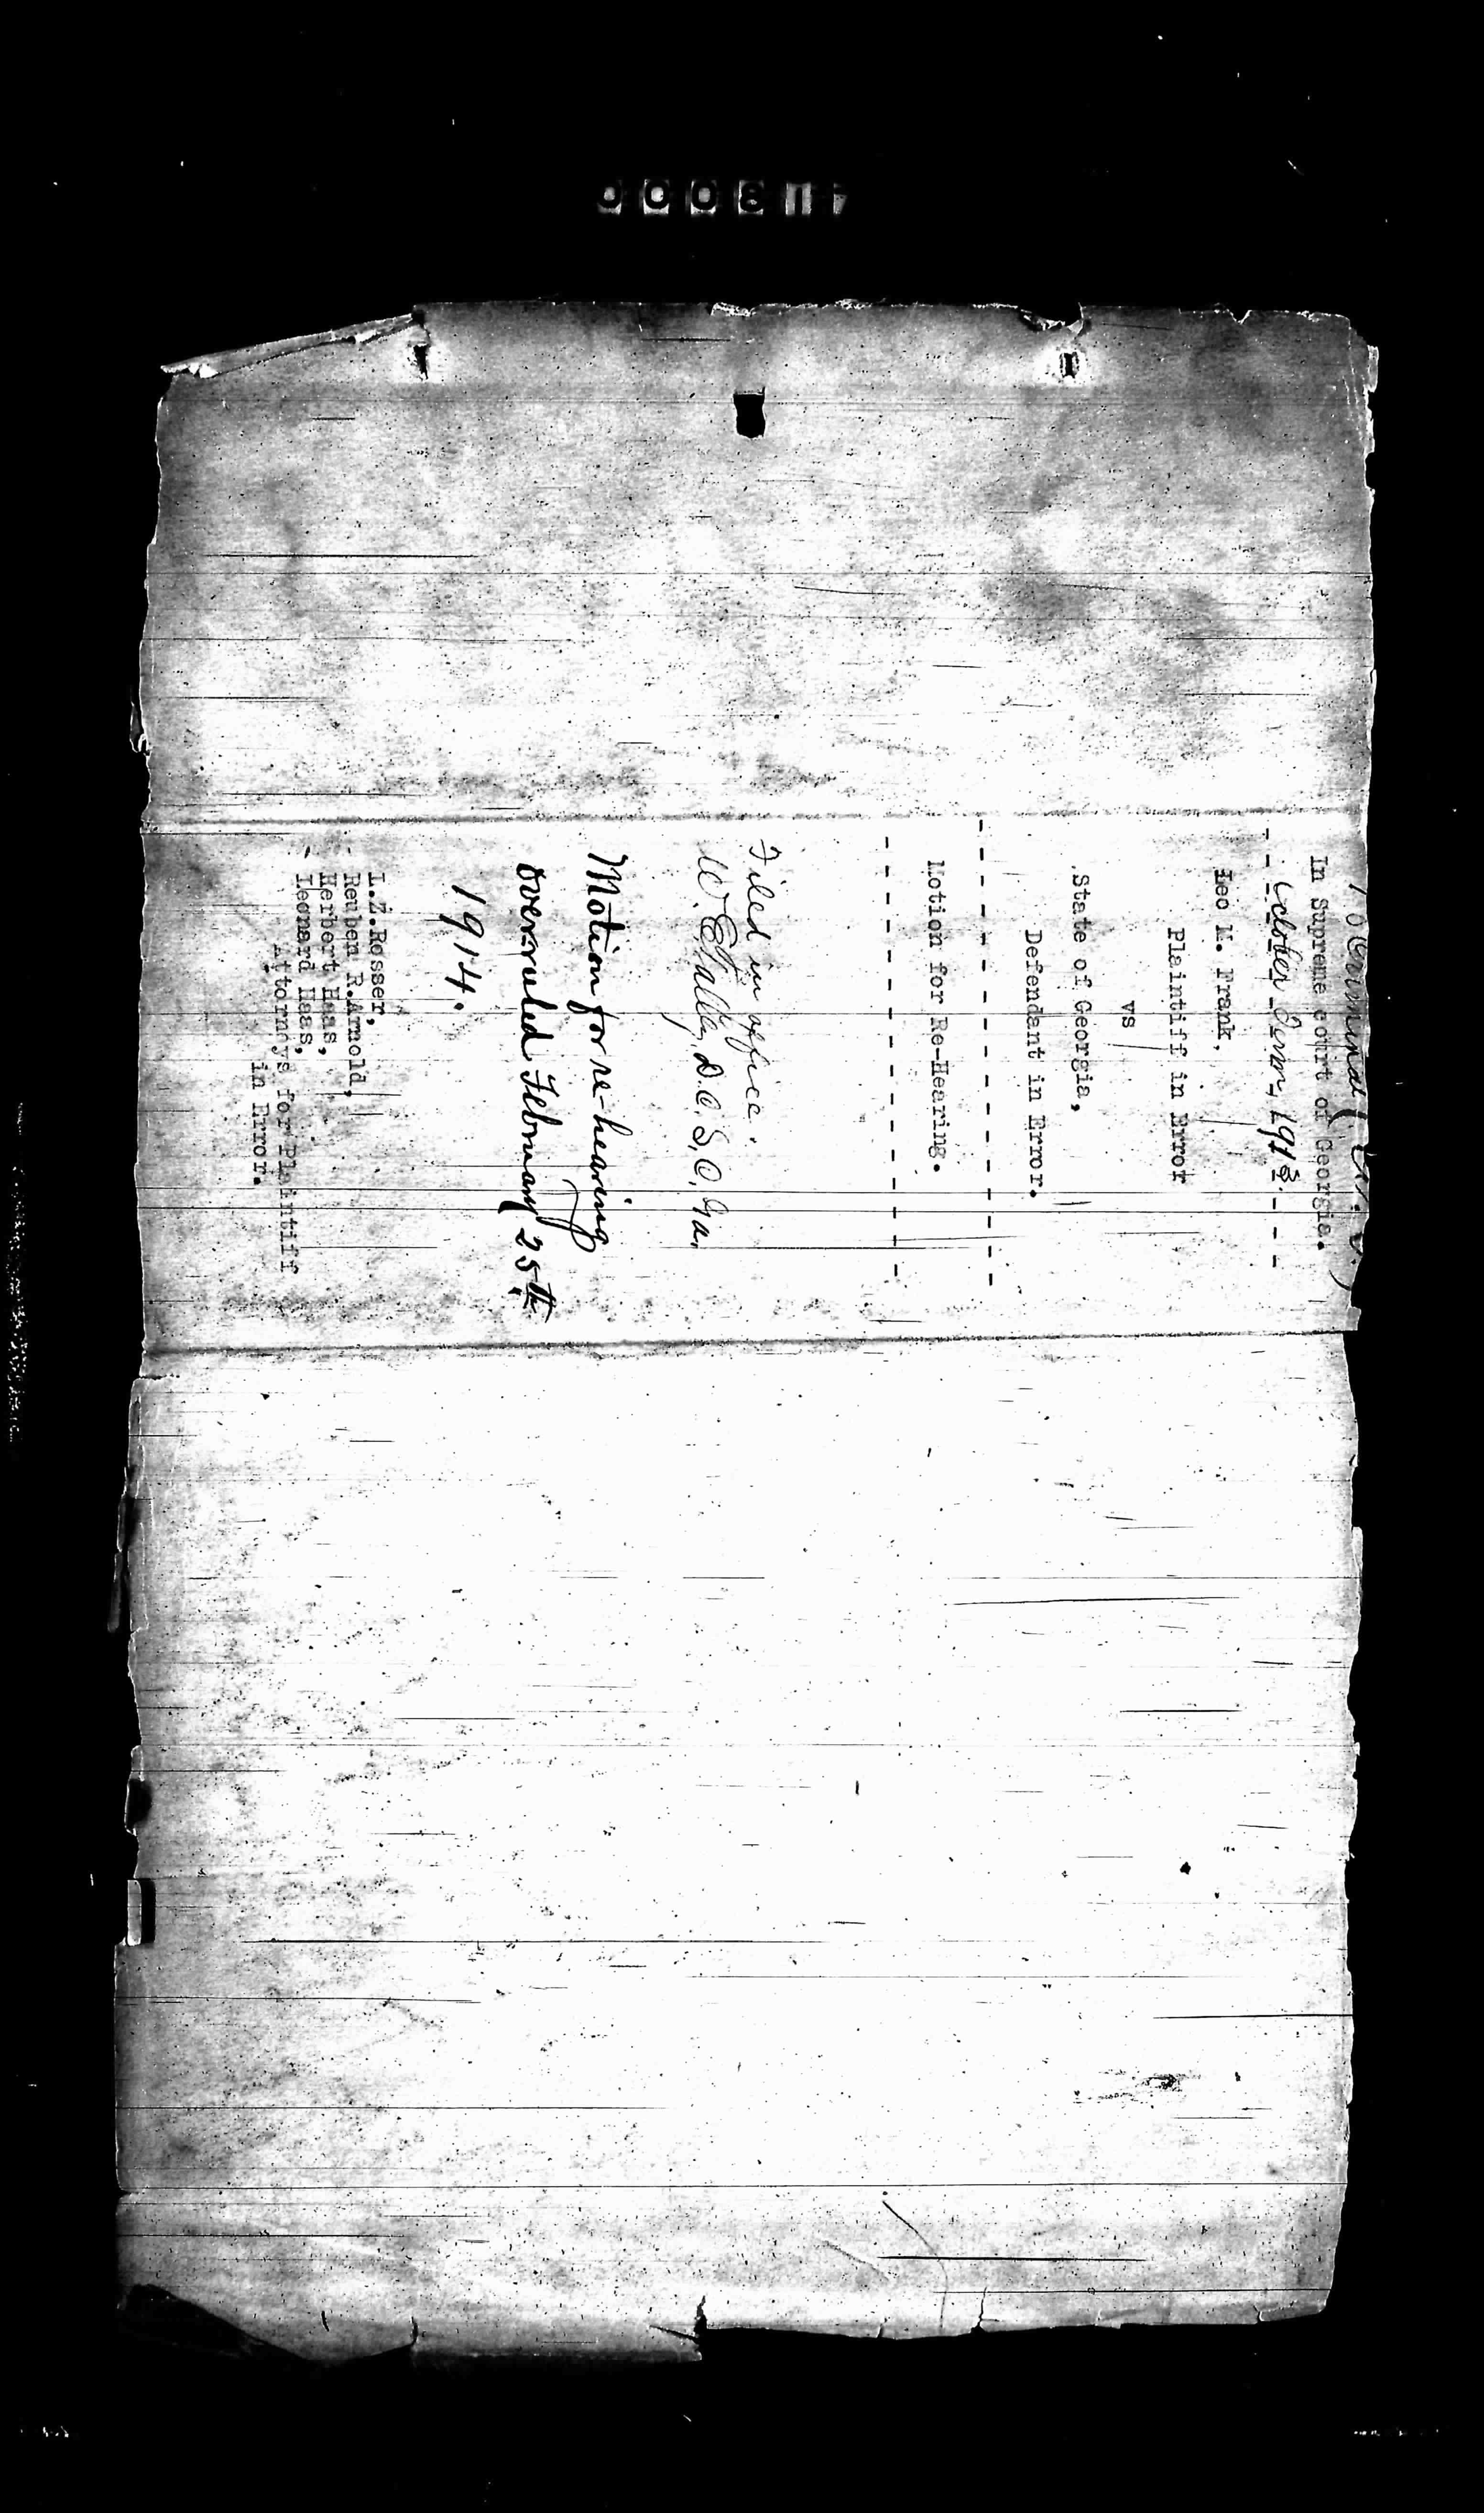 00081
10 Criminal
In Supreme court of Georgia.
- - October Term, 1913. - - -
Leo M. Frank,
Plaintiff in Error
vs
State of Georgia,
Defendant in Error.
- - - - - - - - - - - - - - - -
Motion for Re-Hearing.
- - - - - - - - - - - - - - - -
Filed in office.
W. E. Talley, D.C.S.C. Ga.
Motion for re-hearing
overruled February 25th
1914.
L.Z.Rosser,
Reuben R.Arnold,
Herbert Haas,
Leonard Haas,
Attorneys for Plaintiff
in Error.